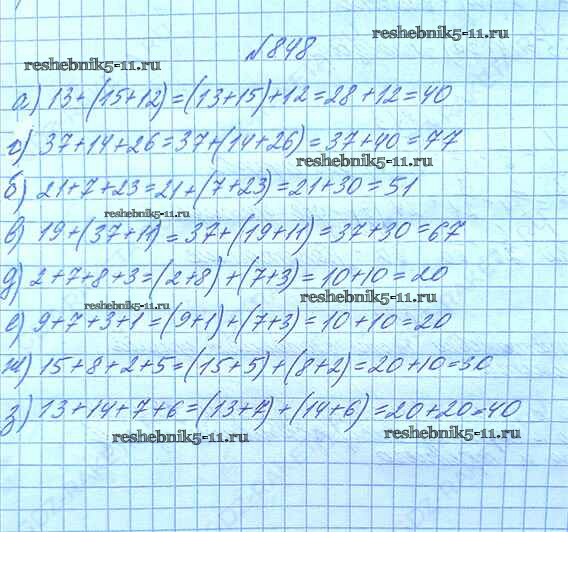 №848
reshebnik5-11.ru
reshebnik5-11.ru
а) 13+(15+12)=(13+15)+12=28+12=40
г) 37+14+26=37+(14+26)=37+40=77
reshebnik5-11.ru
б) 21+7+23=21+(7+23)=21+30=51
reshebnik5-11.ru
в) 19+(37+11)=37+(19+11)=37+30=67
д) 2+7+8+3=(2+8)+(7+3)=10+10=20
reshebnik5-11.ru
reshebnik5-11.ru
е) 9+7+3+1=(9+1)+(7+3)=10+10=20
ж) 15+8+2+5=(15+5)+(8+2)=20+10=30
з) 13+14+7+6=(13+7)+(14+6)=20+20=40
reshebnik5-11.ru
reshebnik5-11.ru